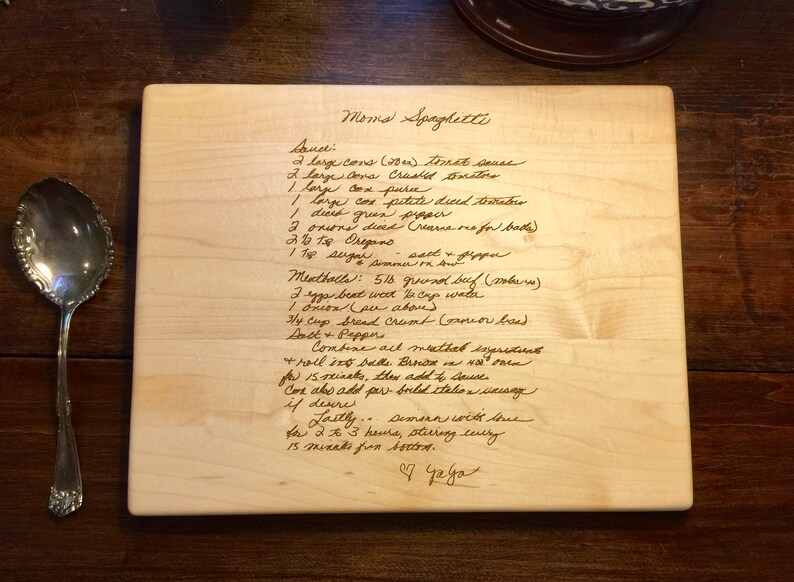 Moms Spaghetti
Sauce:
2 large cans (28oz) tomat sauce
2 large cans crushed tomatoes
1 large can puree
1 large can petite diced tomatoes
1 diced green pepper
2 onions diced (reserve one for balls)
2 1/2 Tsp Oregano
1 Tsp sugar - salt & pepper
* simmer on low
Meatballs: 5 lb ground beef (makes 40)
2 eggs beat with 1/2 cup water
1 onion (see above)
3/4 cup bread crumb (more or less)
Salt & Pepper
Combine all meatball ingredients
& roll into balls. Brown in 400° oven
for 15 minutes, then add to sauce.
Can also add par-boiled italian sausage
if desire.
Lastly... simmer with love
for 2 to 3 hours, stirring every
15 minutes from bottom.
♡ YaYa